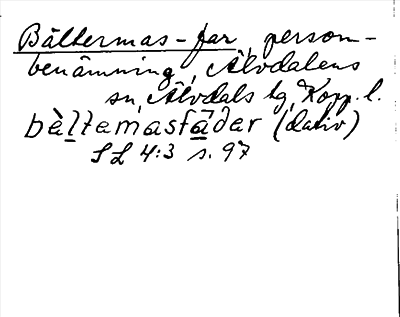 Bältermas-far, person-
benämning, Älvdalens
sn, Älvdals tg, Kopp. l.
bàltemasfàdar (dativ)
SL 4:3 s. 97